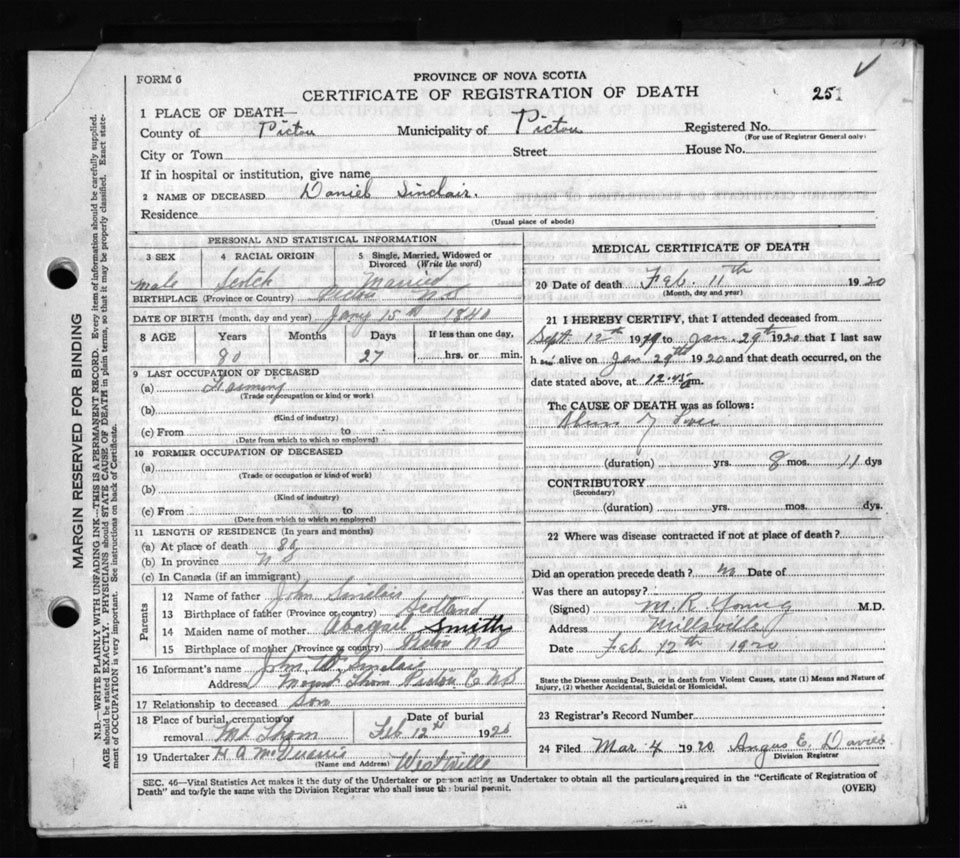 FORM 6
PROVINCE OF NOVA SCOTIA
CERTIFICATE OF REGISTRATION OF DEATH
251
1 PLACE OF DEATH—
County of Pictou Municipality of Pictou Registered No.
(For use of Registrar General only)
City or Town Street House No.
If in hospital or institution, give name
2 NAME OF DECEASED Daniel Sinclair.
Residence
(Usual place of abode)
PERSONAL AND STATISTICAL INFORMATION
3 SEX 4 RACIAL ORIGIN 5 Single, Married, Widowed or Divorced (Write the word)
Male Scotch Married
BIRTHPLACE (Province or Country) Pictou N S
DATE OF BIRTH (month, day and year) Jany 15th 1840
8 AGE Years Months Days If less than one day,
80 27 hrs. or min.
9 LAST OCCUPATION OF DECEASED
(a) Farming
(Trade or occupation or kind or work)
(b)
(Kind of industry)
(c) From to
(Date from which to which so employed)
10 FORMER OCCUPATION OF DECEASED
(a)
(Trade or occupation or kind of work)
(b)
(Kind of industry)
(c) From to
(Date from which to which so employed)
11 LENGTH OF RESIDENCE (In years and months)
(a) At place of death 80
(b) In province N S
(c) In Canada (if an immigrant)
Parents
12 Name of father John Sinclair
13 Birthplace of father (Province or country) Scotland
14 Maiden name of mother Abagail Smith
15 Birthplace of mother (Province or country) Pictou N S
16 Informant's name John W. Sinclair
Address Mount Thom Pictou C. N.S
17 Relationship to deceased Son
18 Place of burial, cremation or removal Mt. Thom
Date of burial Feb 12th 1920
19 Undertaker H A McQuarrie
(Name and Address) Westville
MEDICAL CERTIFICATE OF DEATH
20 Date of death Feb. 11th 1920
(Month, day and year)
21 I HEREBY CERTIFY, that I attended deceased from
Sept. 12th 1919 to Jan. 29th 1920 that I last saw
him alive on Jan 29th 1920 and that death occurred, on the
date stated above, at 12.45 m.
The CAUSE OF DEATH was as follows:
(duration) yrs. 8 mos. 11 dys
CONTRIBUTORY
(Secondary)
(duration) yrs. mos. dys.
22 Where was disease contracted if not at place of death?
Did an operation precede death? no Date of
Was there an autopsy?
(Signed) M. R. Young M.D.
Address Millsville
Date Feb. 12th 1920
State the Disease causing Death, or in death from Violent Causes, state (1) Means and Nature of Injury, (2) whether Accidental, Suicidal or Homicidal.
23 Registrar's Record Number
24 Filed Mar 4 1920 Angus E. Davies
Division Registrar
SEC. 46—Vital Statistics Act makes it the duty of the Undertaker or person acting as Undertaker to obtain all the particulars required in the "Certificate of Registration of
Death" and to fyle the same with the Division Registrar who shall issue the burial permit.
(OVER)
MARGIN RESERVED FOR BINDING
N.B.—WRITE PLAINLY WITH UNFADING INK—THIS IS A PERMANENT RECORD. Every item of information should be carefully supplied.
AGE should be stated EXACTLY. PHYSICIANS should STATE CAUSE OF DEATH in plain terms, so that it may be properly classified. Exact statement of OCCUPATION is very important. See instructions on back of Certificate.